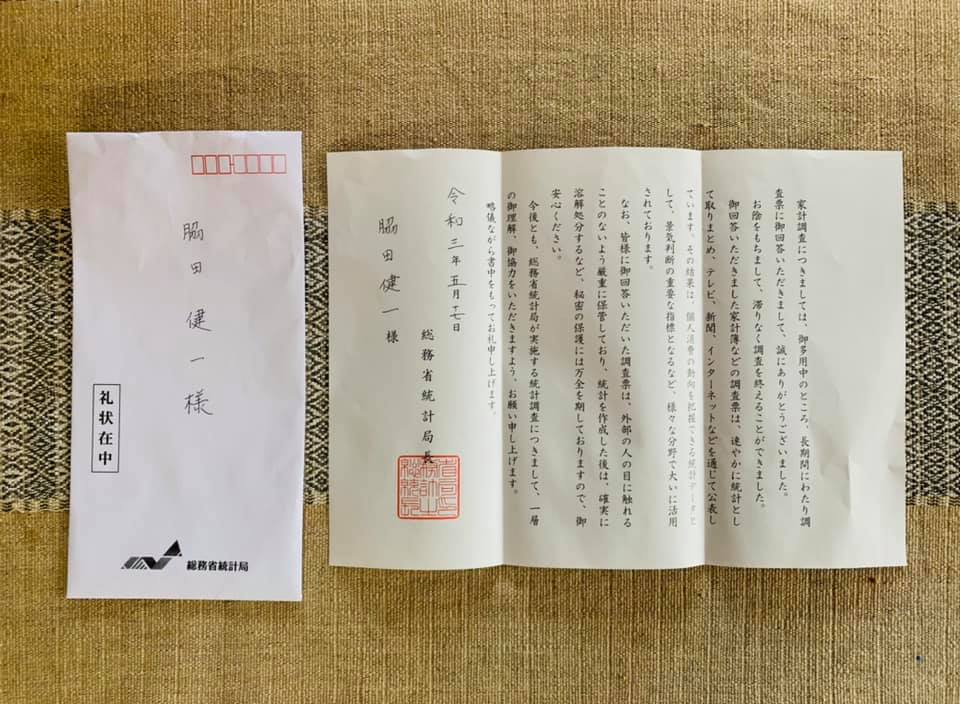 脇田健一様
礼状在中
総務省統計局
家計調査につきましては、御多用中のところ、長期間にわたり調
査票に御回答いただきまして、誠にありがとうございました。
お陰をもちまして、滞りなく調査を終えることができました。
御回答いただきました家計簿などの調査票は、速やかに統計とし
て取りまとめ、テレビ、新聞、インターネットなどを通じて公表し
ています。その結果は、個人消費の動向を把握できる統計データと
して、景気判断の重要な指標となるなど、様々な分野で大いに活用
されております。
なお、皆様に御回答いただいた調査票は、外部の人の目に触れる
ことのないよう厳重に保管しており、統計を作成した後は、確実に
溶解処分するなど、秘密の保護には万全を期しておりますので、御
安心ください。
今後とも、総務省統計局が実施する統計調査につきまして、一層
の御理解、御協力をいただきますよう、お願い申し上げます。
略儀ながら書中をもってお礼申し上げます。
令和三年五月十七日
総務省統計局長
脇田健一様